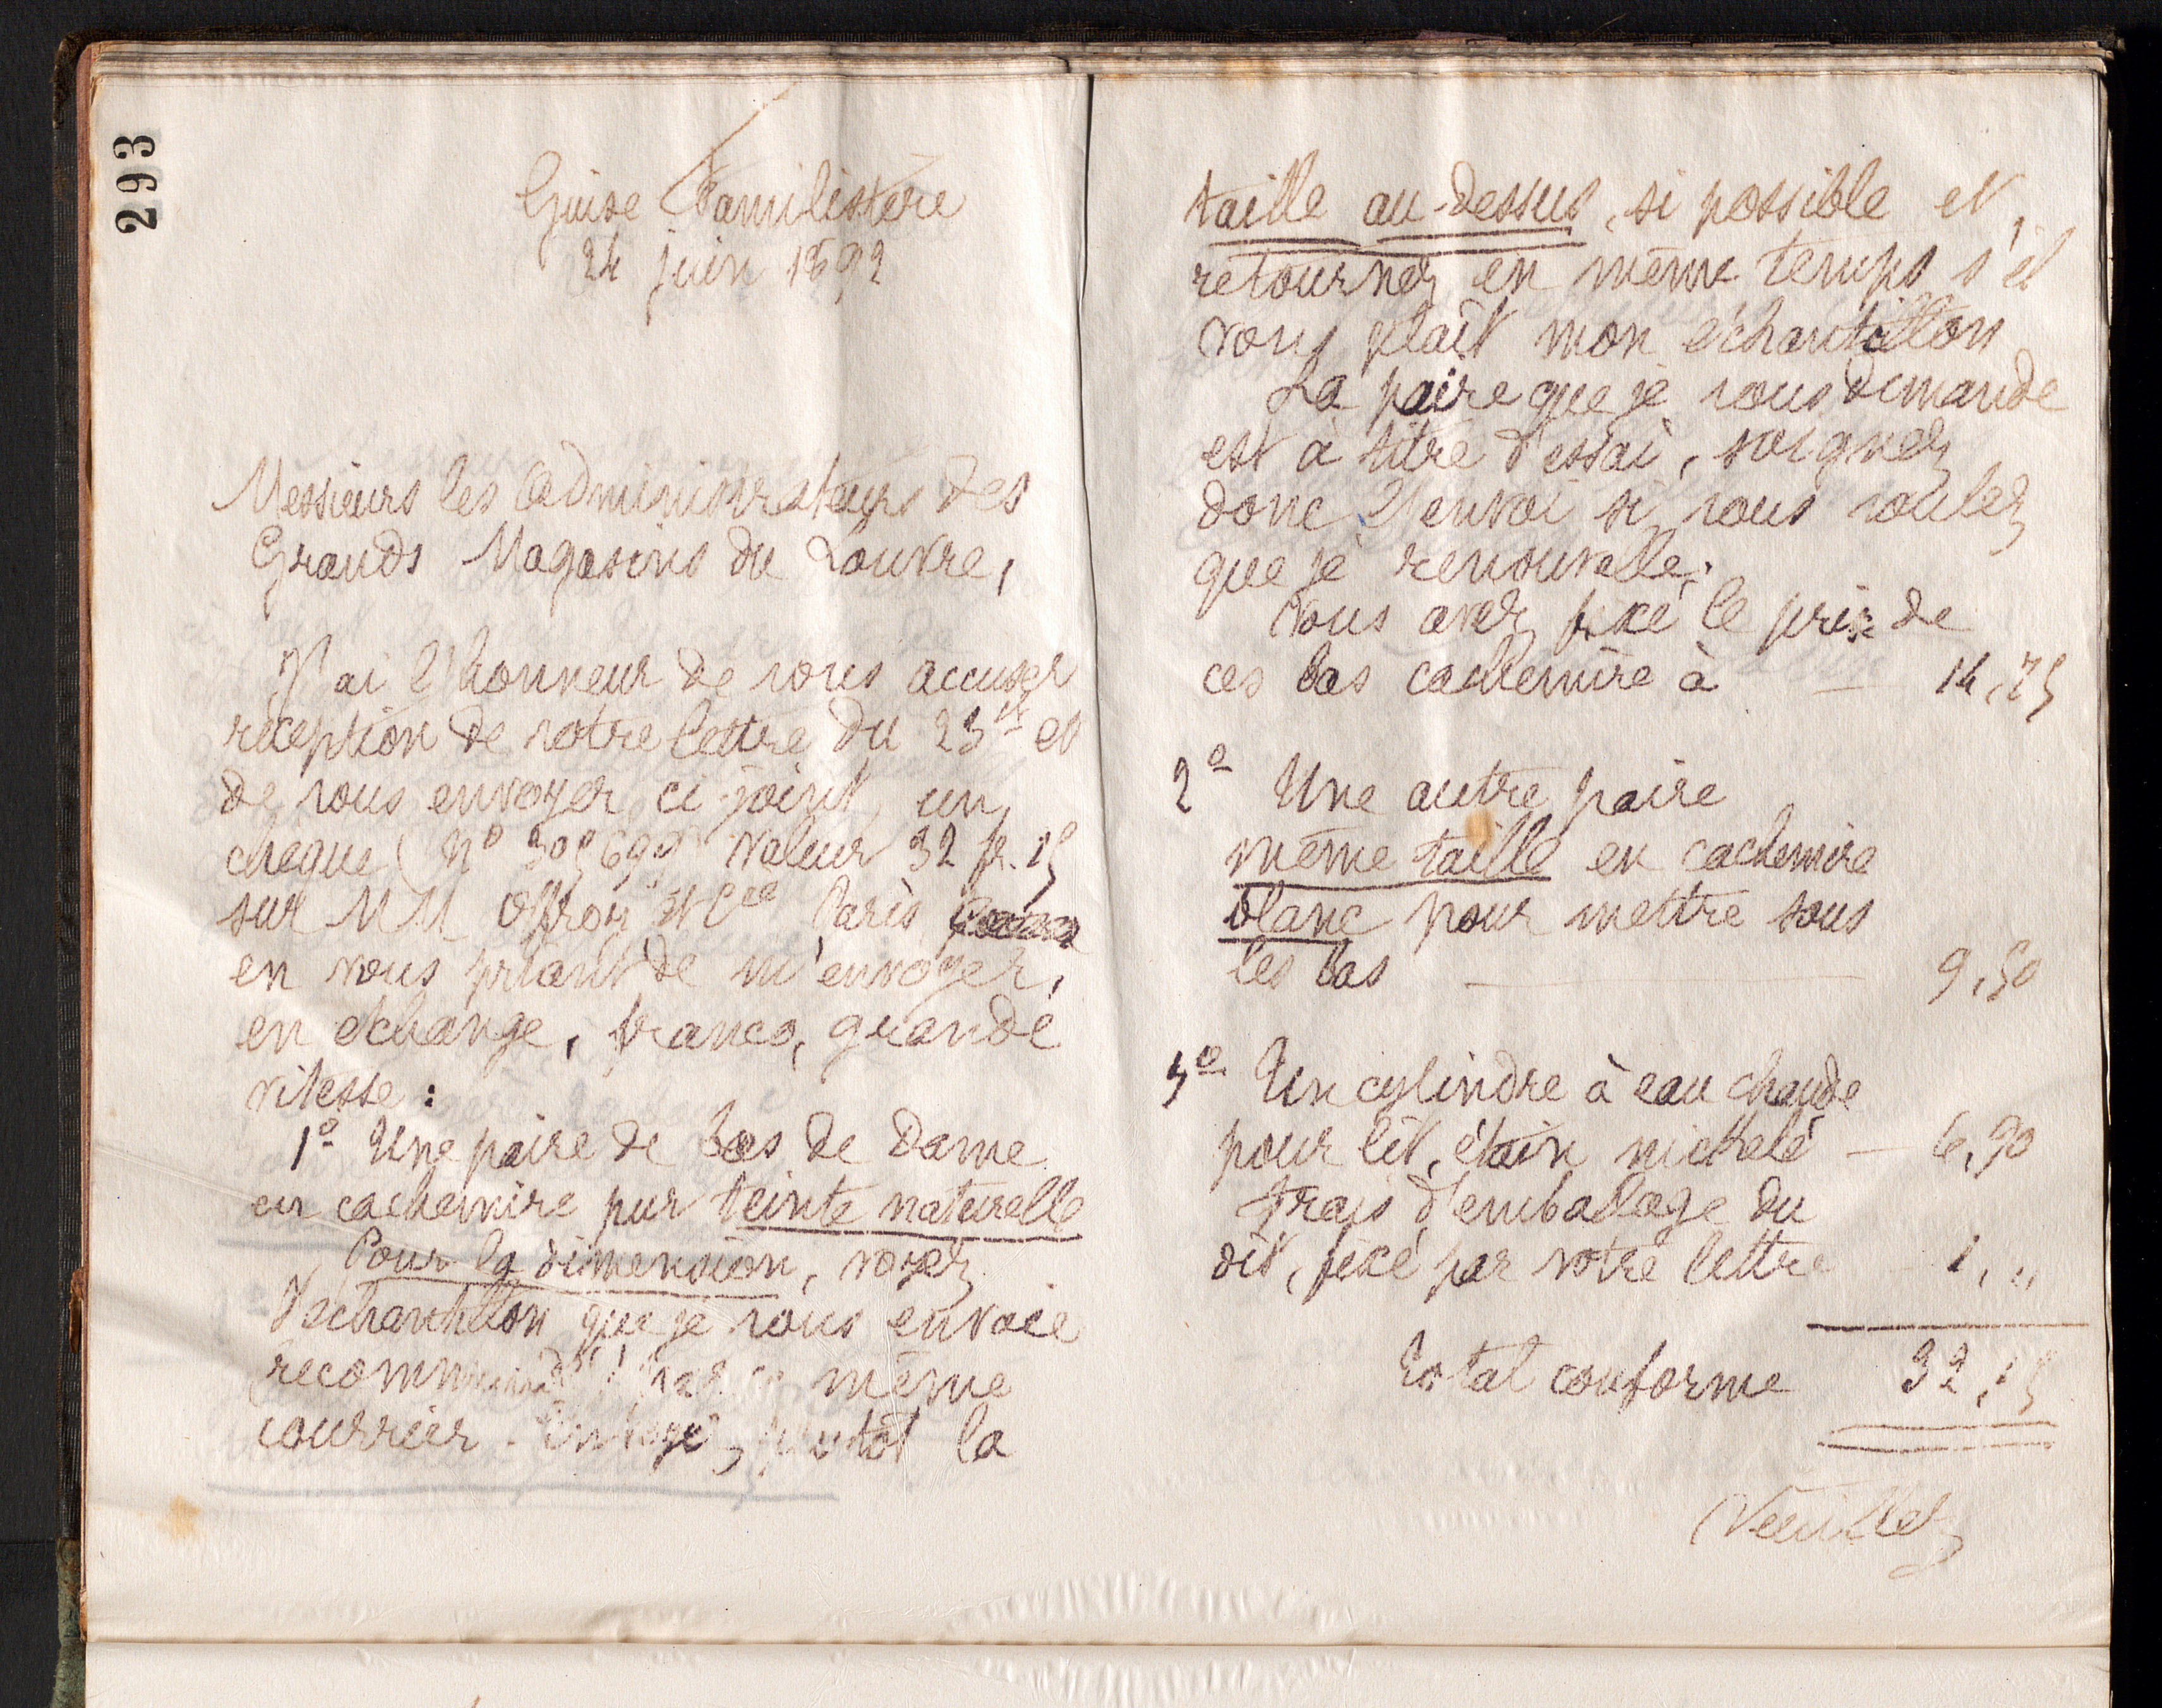 293
Guise Familistère
24 juin 1892
Messieurs les Administrateurs des
Grands Magasins du Louvre,
J'ai l'honneur de vous accuser
réception de votre lettre du 23 et
de vous envoyer ci-joint, un
chèque (Nº 305699) valeur 32 fr. 15
sur MM Offroy et Cie Paris
en vous priant de m'envoyer,
en échange, franco, grande
vitesse :
1º Une paire de bas de Dame
en cachemire pur teinte naturelle
Pour la dimension, voyez
l'échantillon que je vous envoie
recommandé par même
courrier. Envoyez plutôt la
taille au-dessus, si possible et,
retournez en même temps s'il
vous plaît mon échantillon
La paire que je vous demande
est à titre d'essai, soignez
donc l'envoi si vous voulez
que je renouvelle.
Vous avez fixé le prix de
ces bas cachemire à — 14,75
2º Une autre paire
même taille en cachemire
blanc pour mettre sous
les bas — 9,50
3º Un cylindre à eau chaude
pour lit, étain nickelé — 6,90
Frais d'emballage du
dit, fixé par votre lettre 1,,,
Total conforme 32,15
Veuillez